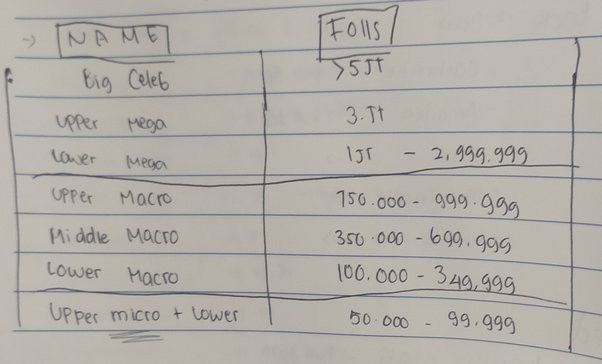 → NAME Folls
Big Celeb >5Jt
Upper Mega 3.Jt
Lower Mega 1Jt - 2.999.999
Upper Macro 750.000 - 999.999
Middle Macro 350.000 - 699.999
Lower Macro 100.000 - 349.999
Upper micro + Lower 50.000 - 99.999